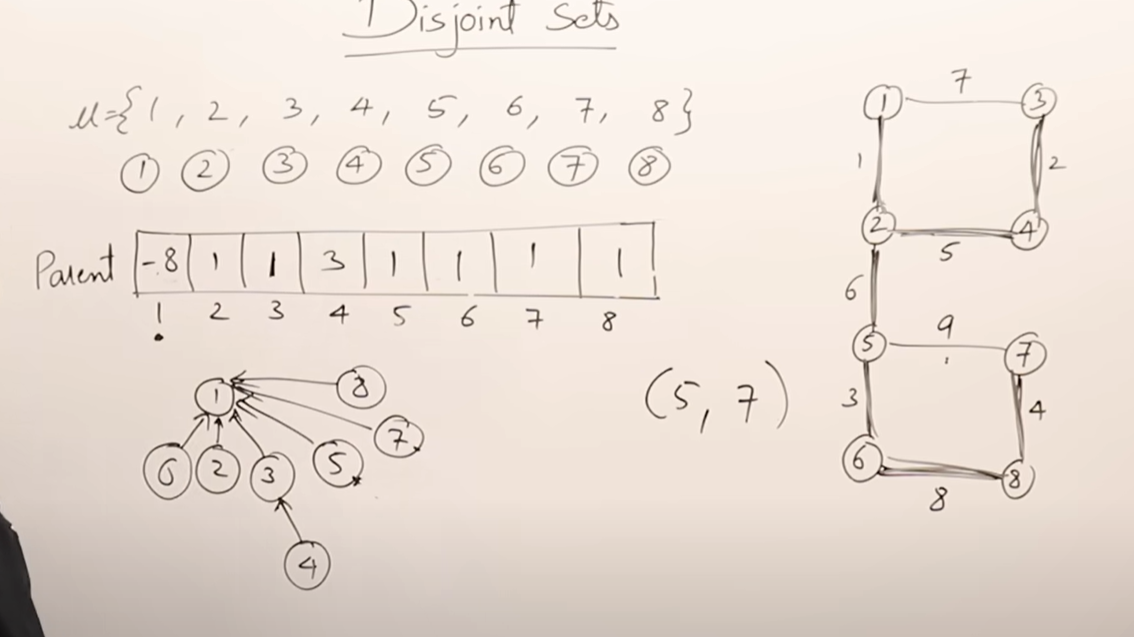 Disjoint Sets
μ={1, 2, 3, 4, 5, 6, 7, 8}
1 2 3 4 5 6 7 8
Parent -8 1 1 3 1 1 1 1
1 2 3 4 5 6 7 8
1 8
7
6 2 3 5
4
(5, 7)
1 7 3
1 2
2 5 4
6
5 9 7
3 4
6 8 8